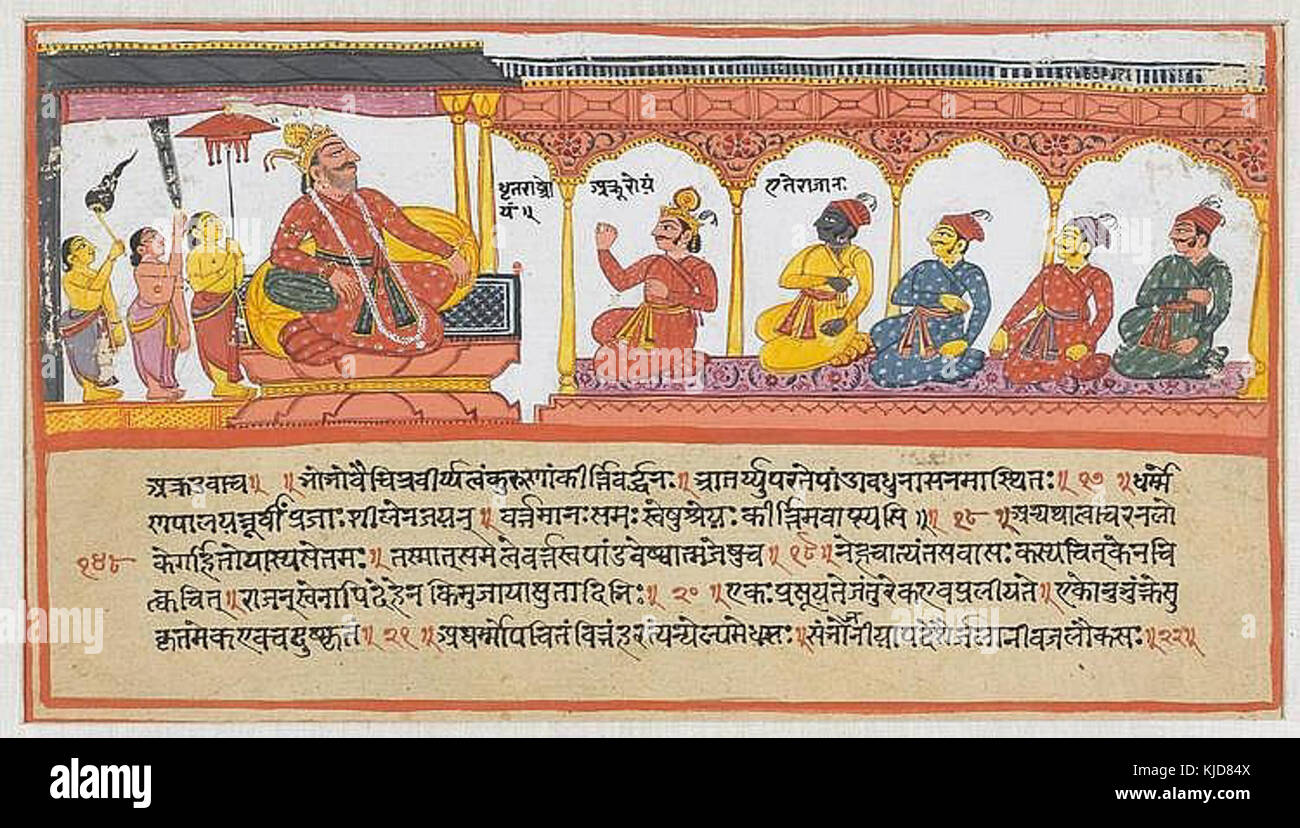 धृतराष्ट्रो
यं॥
अक्रूरोयं
एतेराजानः
अक्रूरउवाच॥ ॥भोभोवैचित्रवीर्य्यत्वंकुरूणांकीर्त्तिवर्द्धनः॥भ्रातर्य्युपरतेपांडावधुनासनमास्थितः॥१७॥धर्म्मे
णपालयन्नूर्वींप्रजाःशीलेनरंजयन्॥वर्त्तमानःसमःस्वेषुश्रेयःकीर्त्तिमवाप्स्यसि॥१८॥अन्यथात्वाचरनलो
१४८ केगर्हितोयास्यसेतमः॥तस्मात्समत्वेवर्त्तस्वपांडवेष्वात्मजेषुच॥१९॥नेहचात्यंतसंवासःकस्यचित्केनचि
त्कचित्॥राजन्स्वेनापिदेहेनकिमुजायासुतादिभिः॥२०॥एकःप्रसूयतेजंतुरेकएवप्रलीयते॥एकोनुभुंक्तेसु
कृतमेकएवचदुष्कृतं॥२१॥अधर्म्मोपचितंवित्तंहरंत्यन्येल्पमेधसः॥संभोजनीयापदेशैर्जलानीवजलौकसः॥२२॥
alamy
a
alamy
Image ID: KJD84X
www.alamy.com